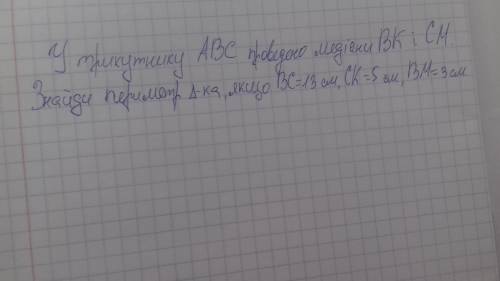 У трикутнику ABC проведено медіани BK і CM
Знайди периметр Δ-ка, якщо BC=13 см, CK=5 см, BM=3 см